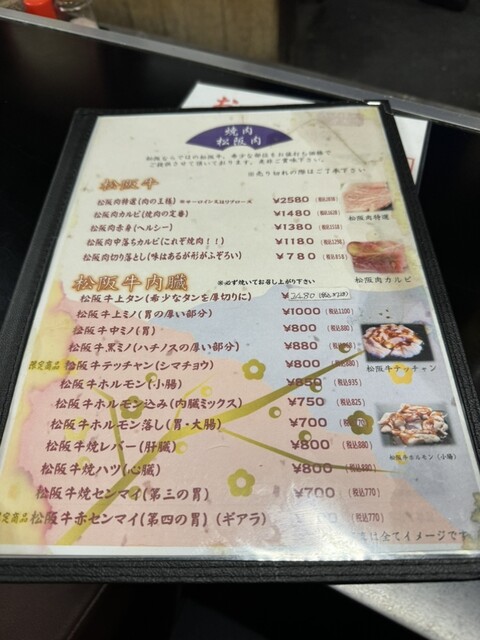 焼肉
松阪肉
和処ならではの松阪牛、希少な部位をお値打ち価格で
ご提供させて頂いております。是非ご賞味下さい。
※売り切れの際はご了承下さい
松阪牛
松阪肉特選(肉の王様) ※サーロイン又はリブロース ¥2580
松阪肉カルビ(焼肉の定番) ¥1480
松阪肉赤身(ヘルシー) ¥1380
松阪肉中落ちカルビ(これぞ焼肉！！) ¥1180
松阪肉切り落とし(味はあるが形がふぞろい) ¥780
松阪肉特選
松阪肉カルビ
松阪牛内臓 ※必ず焼いてお召し上がり下さい
松阪牛上タン(希少なタンを厚切りに) ¥2480
松阪牛上ミノ(胃の厚い部分) ¥1000 (税込1100)
松阪牛中ミノ(胃) ¥800 (税込880)
松阪牛黒ミノ(ハチノスの厚い部分) ¥880
限定商品 松阪牛テッチャン(シマチョウ) ¥800 (税込880)
松阪牛ホルモン(小腸) ¥850 (税込935)
松阪牛ホルモン込み(内臓ミックス) ¥750 (税込825)
松阪牛ホルモン落し(胃・大腸) ¥700
松阪牛焼レバー(肝臓) ¥800 (税込880)
松阪牛焼ハツ(心臓) ¥800 (税込880)
松阪牛焼センマイ(第三の胃) ¥700 (税込770)
限定商品 松阪牛赤センマイ(第四の胃)(ギアラ) (税込770)
松阪牛テッチャン
松阪牛ホルモン(小腸)
は全てイメージです